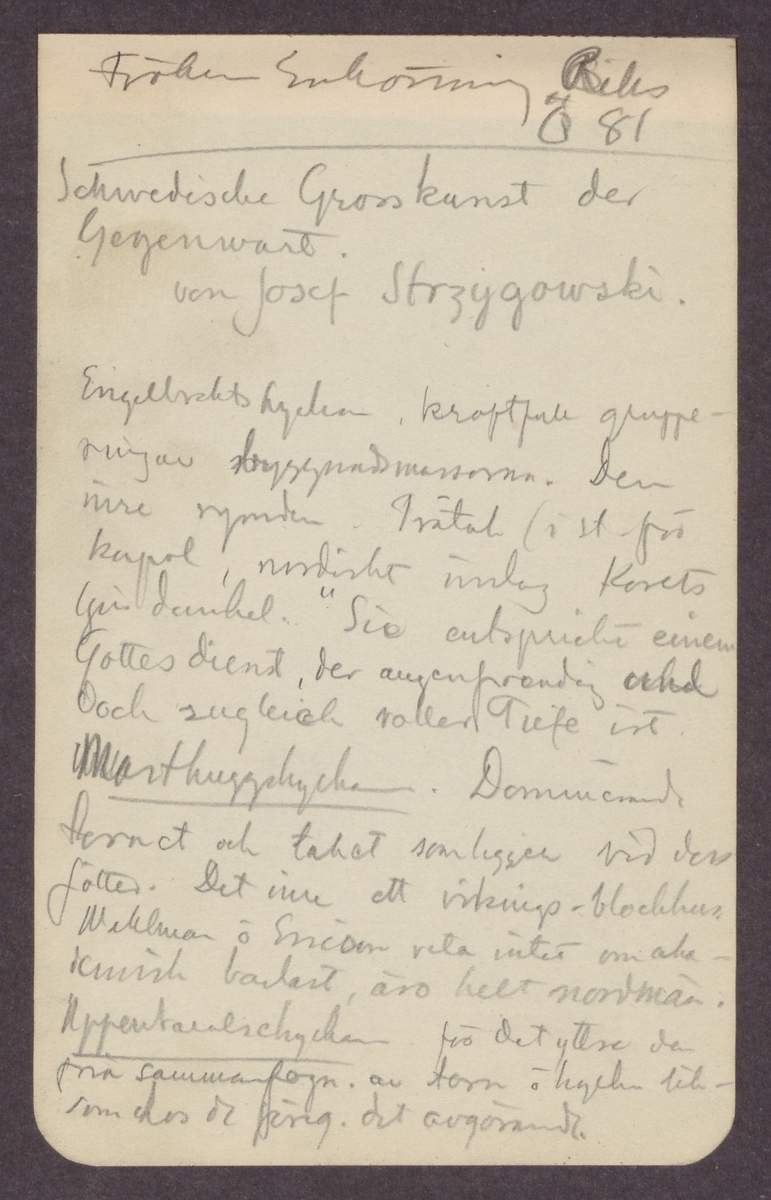 Fröken Enhörning Riks
Ö 81
Schwedische Grosskunst der
Gegenwart.
von Josef Strzygowski.
Engelbrektskyrkan, kraftfull gruppe-
ringav byggnadsmassorna. Den
inre rymden. Trätak (i st. för
kupol, nordiskt inslag Korets
dunkel. "Sie entspricht einem
Gottesdienst, der augenfreudig und
doch zugleich voller Tiefe ist.
Masthuggskyrkan. Dominerande
tornet och taket som ligger vid dess
fötter. Det inre ett vikings-blockhus.
Wahlman o Ericson veta intet om aka-
demisk barlast, äro helt nordmän.
Uppenbarelsekyrkan för det yttre den
fria sammanfogn. av torn o kyrka lik-
som hos de föreg. det avgörande.